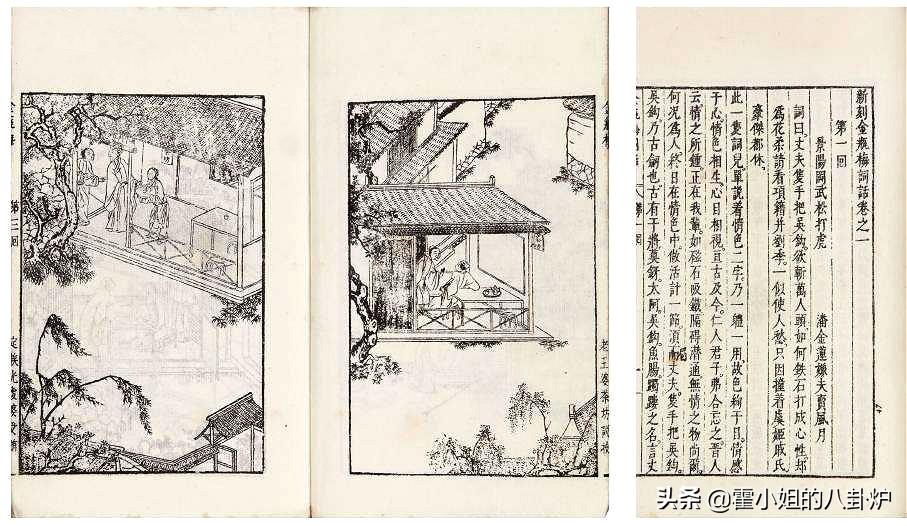 新刻金瓶梅詞話卷之一
第一回
景陽岡武松打虎 潘金蓮嫌夫賣風月
詞曰丈夫隻手把吳鈎欲斬萬人頭如何鉄石打成心性却
爲花柔請看項籍并劉季一似使人愁只因撞着虞姬戚氏
豪傑都休
此一隻詞兒單說着情色二字乃一體一用故色絢于目情感
于心情色相生心目相視亘古及今仁人君子弗合忘之晋人
云情之所鍾正在我輩如磁石吸鐵隔碍潛通無情之物尚爾
何況爲人終日在情色中做活計一節須 丈夫隻手把吳鈎
吳鈎乃古劍也古有干將莫鋣太阿吳鈎魚腸 之名言丈
老王婆茶坊
頭条 @霍小姐的八卦炉